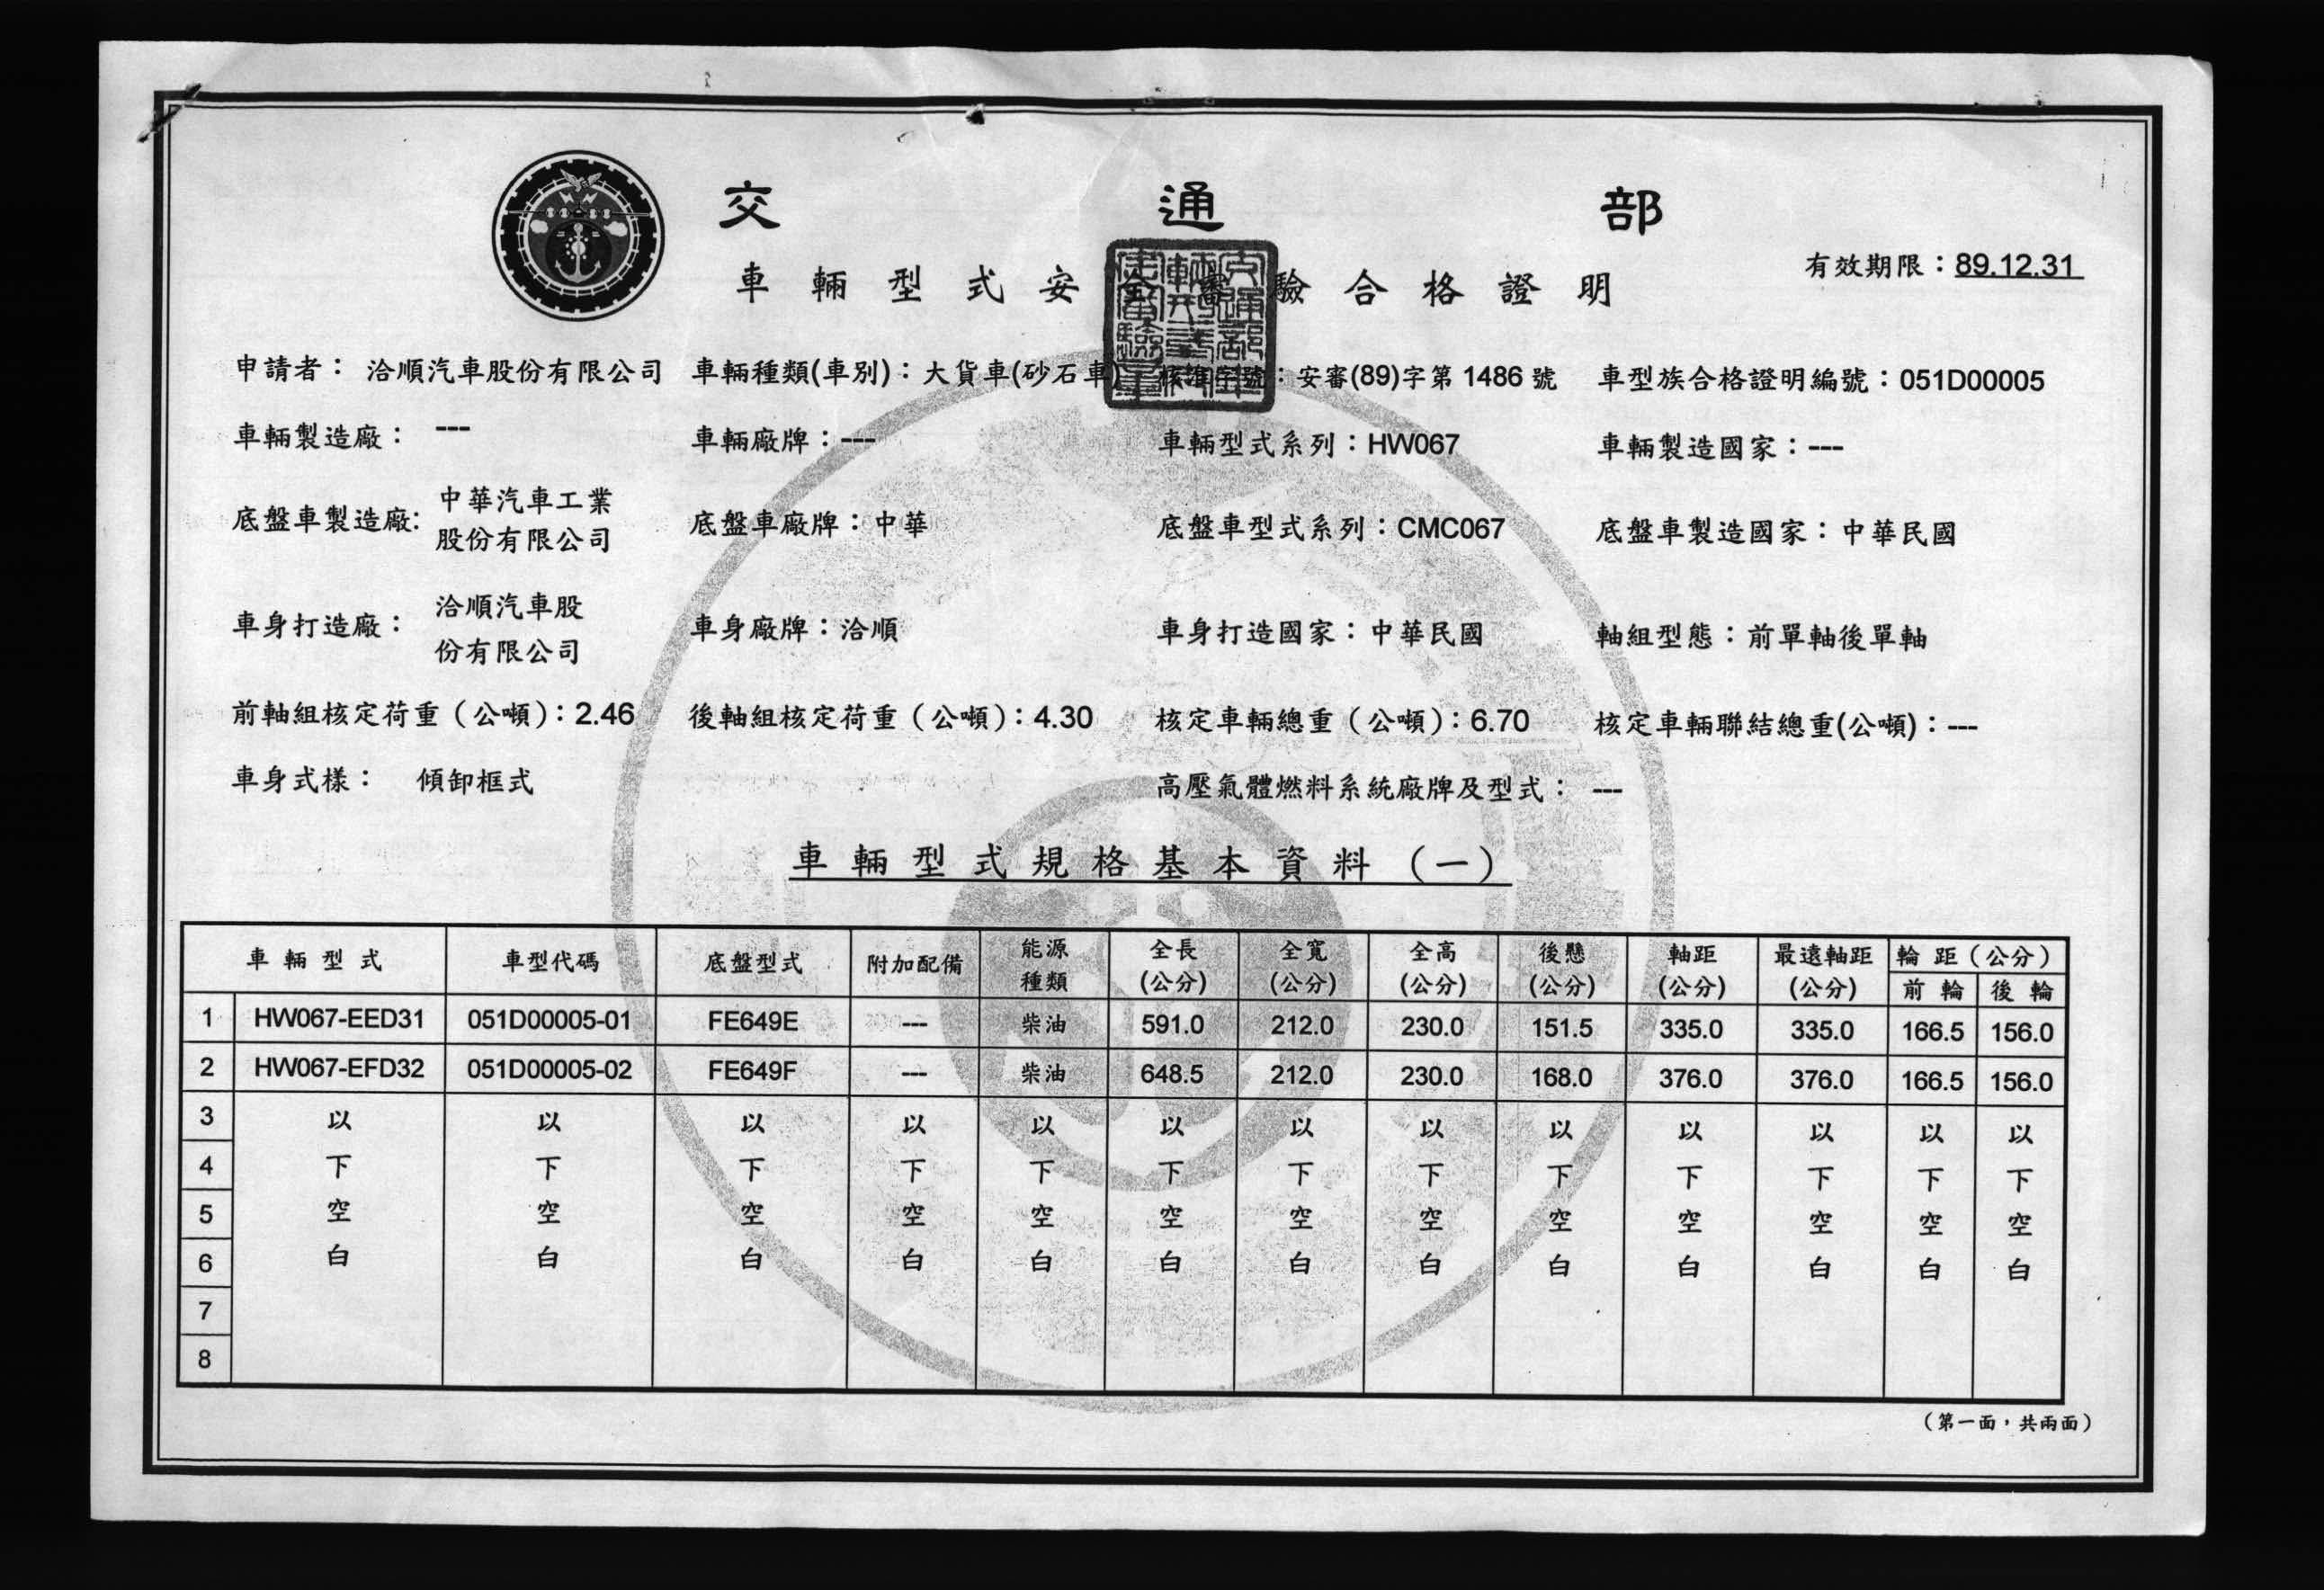 交通部
車輛型式安全審驗合格證明
有效期限：89.12.31
申請者： 洽順汽車股份有限公司 車輛種類(車別)：大貨車(砂石車) 核准字號：安審(89)字第 1486 號 車型族合格證明編號：051D00005
車輛製造廠： --- 車輛廠牌：--- 車輛型式系列：HW067 車輛製造國家：---
底盤車製造廠: 中華汽車工業股份有限公司 底盤車廠牌：中華 底盤車型式系列：CMC067 底盤車製造國家：中華民國
車身打造廠： 洽順汽車股份有限公司 車身廠牌：洽順 車身打造國家：中華民國 軸組型態：前單軸後單軸
前軸組核定荷重（公噸）：2.46 後軸組核定荷重（公噸）：4.30 核定車輛總重（公噸）：6.70 核定車輛聯結總重(公噸)：---
車身式樣： 傾卸框式 高壓氣體燃料系統廠牌及型式： ---
車輛型式規格基本資料（一）
車輛型式 車型代碼 底盤型式 附加配備 能源種類 全長(公分) 全寬(公分) 全高(公分) 後懸(公分) 軸距(公分) 最遠軸距(公分) 輪距（公分）
前輪 後輪
1 HW067-EED31 051D00005-01 FE649E --- 柴油 591.0 212.0 230.0 151.5 335.0 335.0 166.5 156.0
2 HW067-EFD32 051D00005-02 FE649F --- 柴油 648.5 212.0 230.0 168.0 376.0 376.0 166.5 156.0
3 以 以 以 以 以 以 以 以 以 以 以 以 以
4 下 下 下 下 下 下 下 下 下 下 下 下 下
5 空 空 空 空 空 空 空 空 空 空 空 空 空
6 白 白 白 白 白 白 白 白 白 白 白 白 白
7
8
（第一面，共兩面）